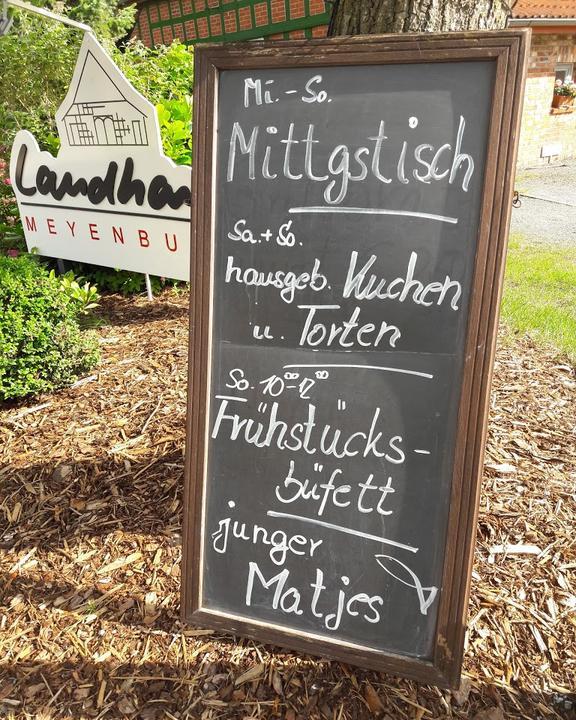 Landhau
MEYENBU
Mi. - So.
Mittgstisch
Sa. + So.
hausgeb. Kuchen
u. Torten
So. 10⁰⁰-12⁰⁰
Frühstücks-
büfett
junger
Matjes